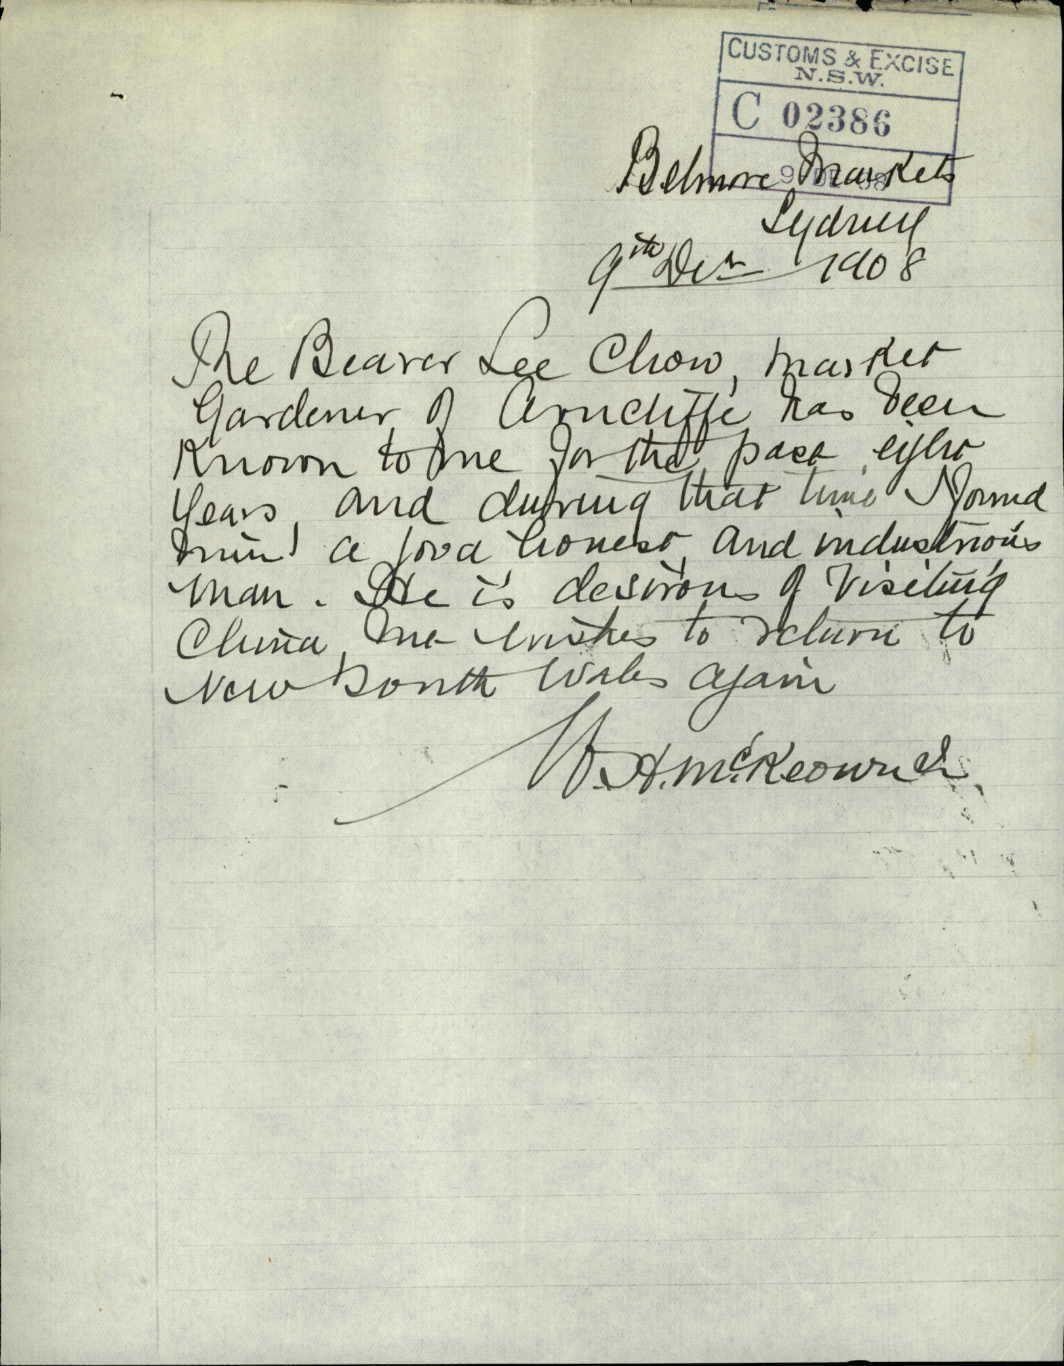 CUSTOMS & EXCISE
N.S.W.
C 02386
Belmore Markets
Sydney
9th Decr 1908
The Bearer Lee Chow, Market
Gardener of Arncliffe has been
Known to me for the past eight
Years, and during that time I found
him a good honest and industrious
man. He is desirous of Visiting
China, he wishes to return to
New South Wales again
W. H. McKeown